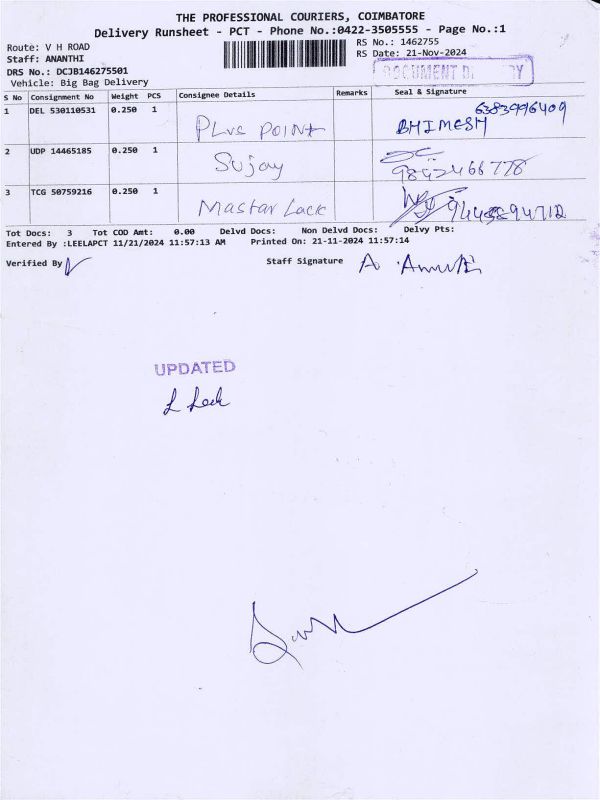 THE PROFESSIONAL COURIERS, COIMBATORE
Delivery Runsheet - PCT - Phone No.:0422-3505555 - Page No.:1
Route: V H ROAD
Staff: ANANTHI
DRS No.: DCJB146275501
Vehicle: Big Bag Delivery
RS No.: 1462755
RS Date: 21-Nov-2024
DOCUMENT
S No Consignment No Weight PCS Consignee Details Remarks Seal & Signature
1 DEL 530110531 0.250 1 Plus POINT 6383996409
BHIMESH
2 UDP 14465185 0.250 1 Sujay
3 TCG 50759216 0.250 1 Mastar Lack
Tot Docs: 3 Tot COD Amt: 0.00 Delvd Docs: Non Delvd Docs: Delvy Pts:
Entered By :LEELAPCT 11/21/2024 11:57:13 AM Printed On: 21-11-2024 11:57:14
Verified By Staff Signature
UPDATED